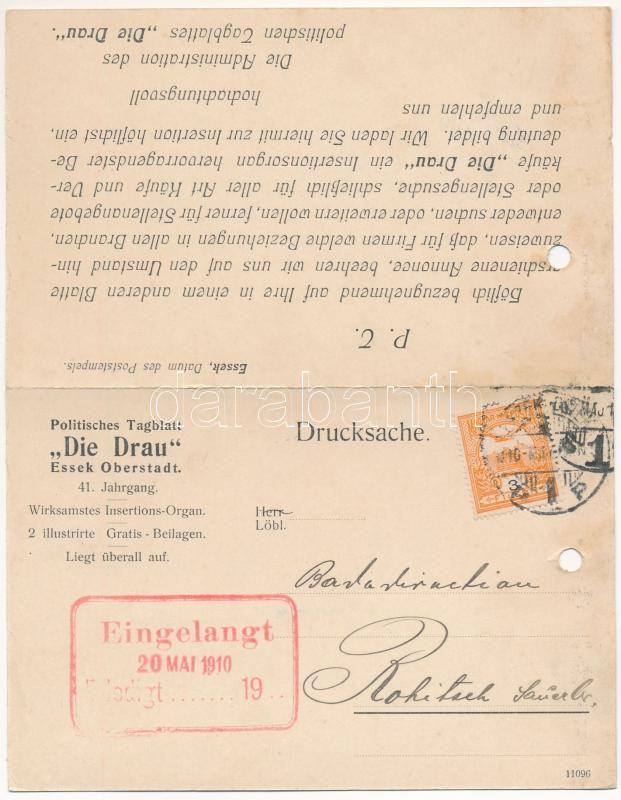 Essek, Datum des Poststempels.
P. T.
Höflich bezugnehmend auf Ihre in einem anderen Blatte
erschienene Annonce, beehren wir uns auf den Umstand hin-
zuweisen, daß für Firmen welche Beziehungen in allen Branchen,
entweder suchen, oder erweitern wollen, ferner für Stellenangebote
oder Stellengesuche, schließlich für aller Art Käufe und Ver-
käufe „Die Drau" ein Insertionsorgan hervorragendster Be-
deutung bildet. Wir laden Sie hiermit zur Insertion höflichst ein,
und empfehlen uns
hochachtungsvoll
Die Administration des
politischen Tagblattes „Die Drau".
darabanth
Politisches Tagblatt
„Die Drau"
Essek Oberstadt.
41. Jahrgang.
Wirksamstes Insertions-Organ.
2 illustrirte Gratis-Beilagen.
Liegt überall auf.
Drucksache.
3
1
Herr
Löbl.
Badedirection
Rohitsch Sauerbr.
Eingelangt
20 MAI 1910
Erledigt ....... 19 ..
11096